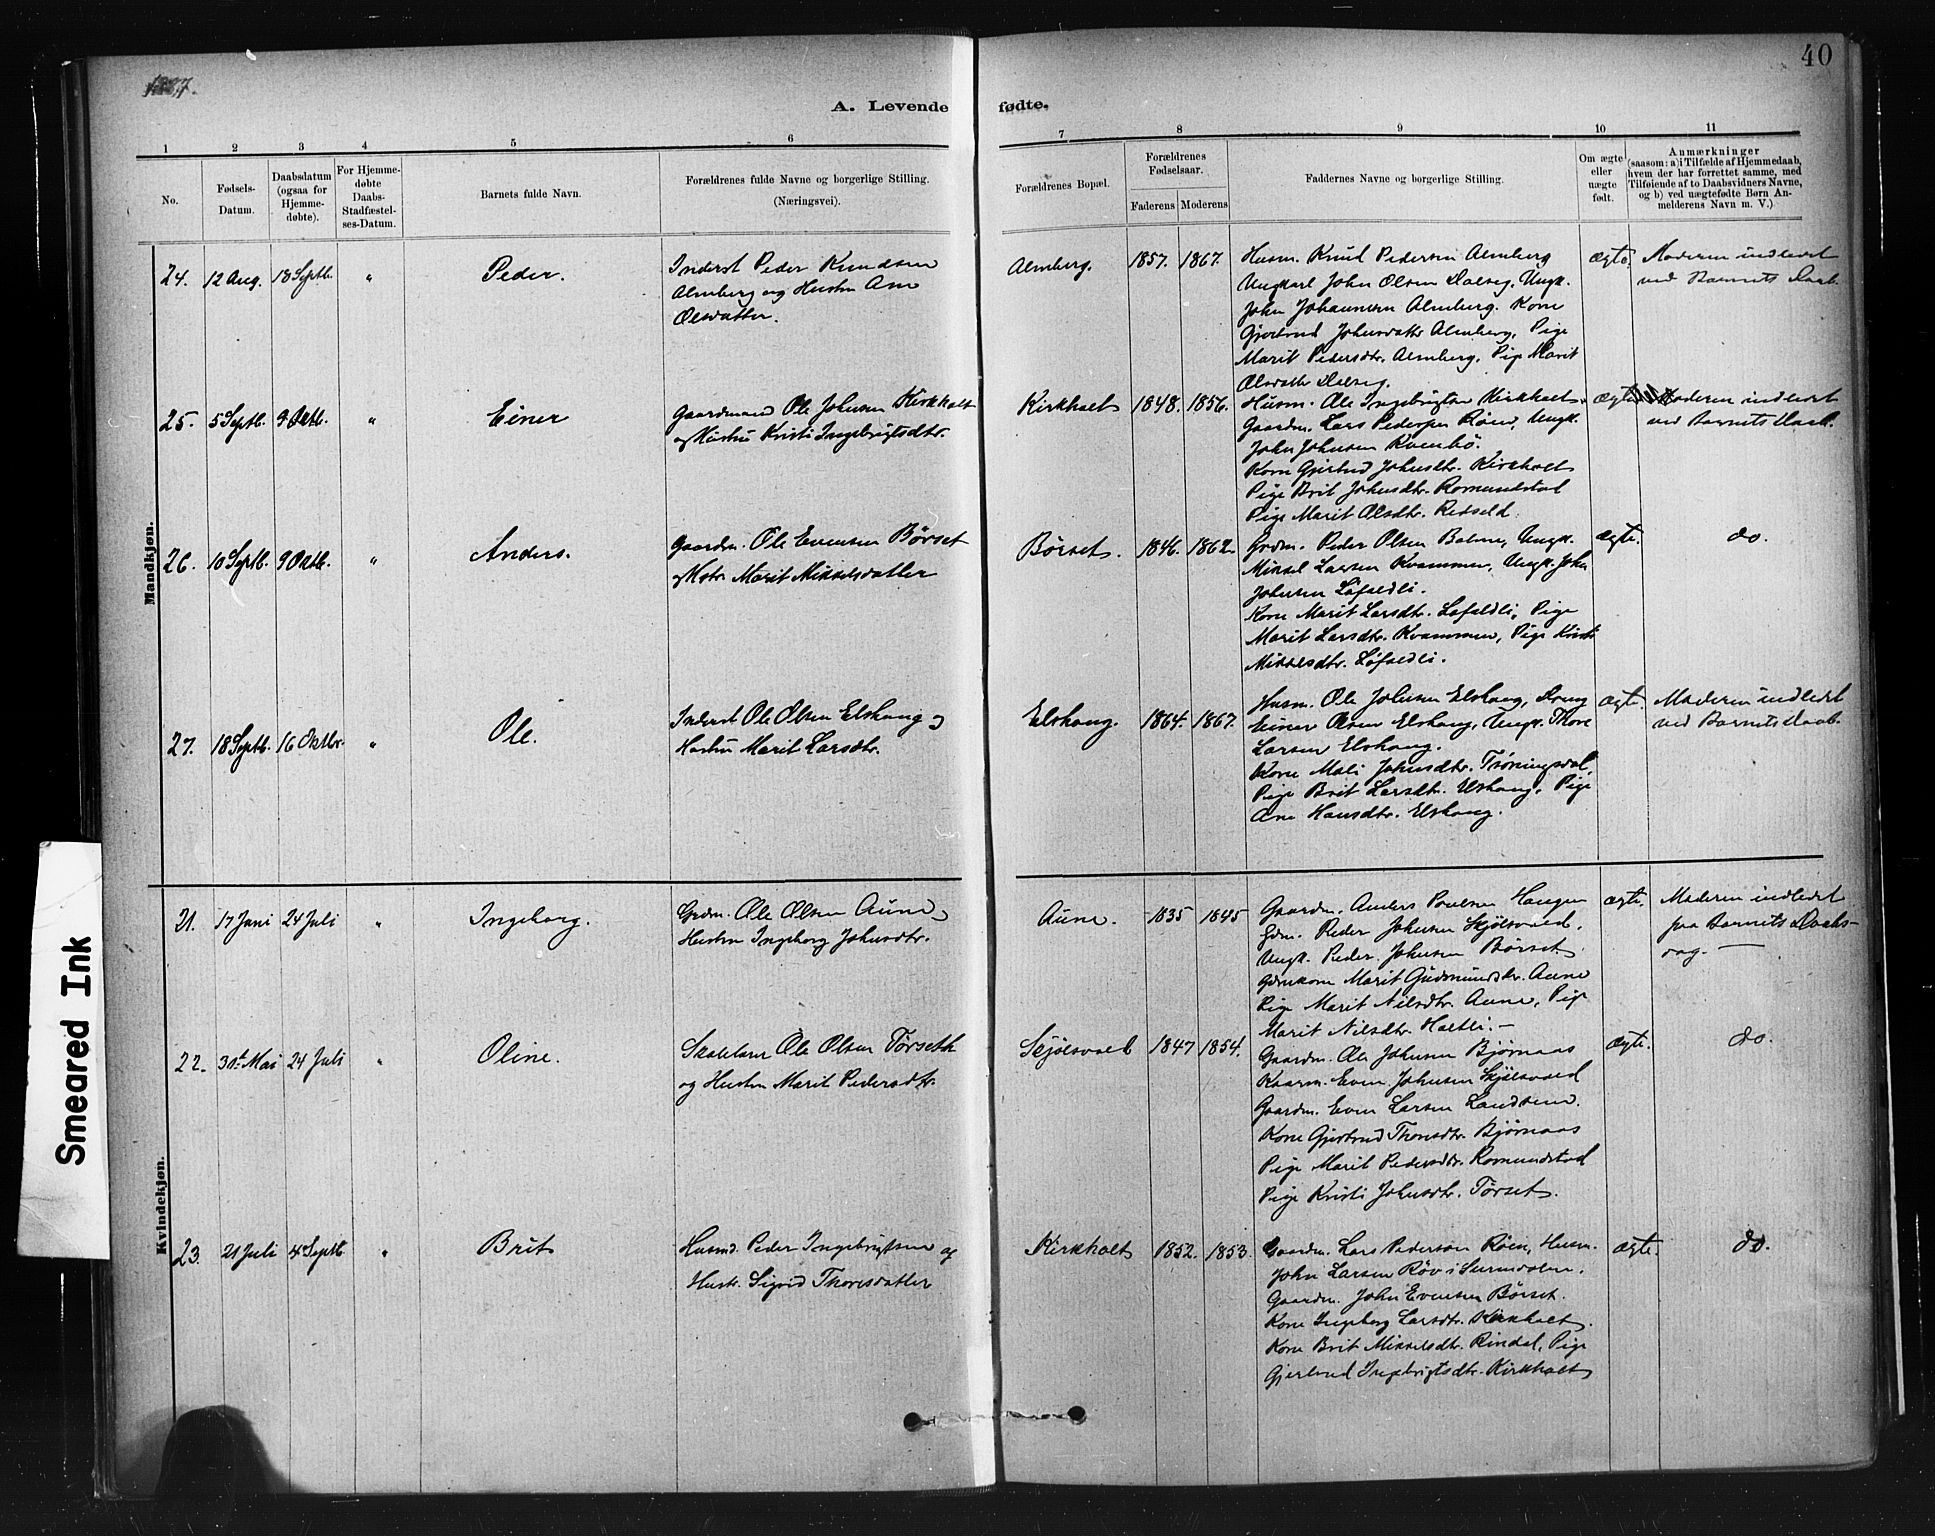 1887.
40
A. Levende fødte.
1 2 3 4 5 6 7 8 9 10 11
No.
Fødsels-
Datum.
Daabsdatum
(ogsaa for
Hjemme-
døbte).
For Hjemme-
døbte
Daabs-
Stadfæstel-
ses-Datum.
Barnets fulde Navn.
Forældrenes fulde Navne og borgerlige Stilling.
(Næringsvei).
Forældrenes Bopæl.
Forældrenes
Fødselsaar.
Faderens Moderens
Faddernes Navne og borgerlige Stilling.
Om ægte
eller
uægte
født.
Anmærkninger
(saasom: a) i Tilfælde af Hjemmedaab,
hvem der har forrettet samme, med
Tilføiende af to Daabsvidners Navne,
og b) ved uægtefødte Børn An-
melderens Navn m. V.)
Mandkjøn.
24. 12 Aug. 18 Septb. " Peder.
Inderst Peder Knudsen
Almberg og Hustru Ane
Olsdatter.
Almberg. 1857. 1867.
Husm. Knud Pedersen Almberg
Ungkarl John Olsen Dalseg, Ungk.
John Johannesen Almberg. Kone
Gjertrud Johnsdatter Almberg, Pige
Marit Pedersdtr. Almberg, Pige Marit
Olsdatter Dalseg.
ægte.
Moderen indledet
ved Barnets Daab.
25. 5 Septb. 9 Oktb. " Einer
Gaardmand Ole Johnsen Kirkholt
og Hustru Kristi Ingebrigtsdtr.
Kirkholt 1848. 1856.
Husm. Ole Ingebrigtsen Kirkholt.
Gaardm. Lars Pedersen Røen, Ungk.
John Johnsen Kvembø.
Kone Gjertrud Johnsdtr. Kirkholt
Pige Brit Johnsdtr. Romundstad
Pige Marit Olsdtr.
ægte
Moderen indledet
ved Barnets Daab.
26. 10 Septb. 9 Oktb. " Anders.
Gaardm. Ole Evensen Børset
og Hstr. Marit Mikkelsdatter
Børset. 1846. 1862.
Grdm. Peder Olsen Bolme, Ungk.
Mikkel Larsen Kvammen, Ungk. John
Johnsen Løfaldli.
Kone Marit Larsdtr. Løfaldli, Pige
Marit Larsdtr. Kvammen, Pige Kristi
Mikkelsdtr. Løfaldli.
ægte.
do.
27. 18 Septb. 16 Oktbr. " Ole.
Inderst Ole Olsen Elshaug og
Hustru Marit Larsdtr.
Elshaug. 1864. 1867.
Husm. Ole Johnsen Elshaug, Dreng
Einer Olsen Elshaug, Ungk. Thore
Larsen Elshaug.
Kone Mali Johnsdtr. Trøningsdal,
Pige Brit Larsdtr. Elshaug, Pige
Ane Hansdtr. Elshaug.
ægte.
Moderen indledet
ved Barnets Daab.
Kvindekjøn.
21. 17 Juni 24 Juli " Ingeborg.
Grdm. Ole Olsen Aune,
Hustru Ingeborg Johnsdtr.
Aune. 1835 1845
Gaardm. Anders Poulsen Haugen
Gdm. Peder Johnsen Skjølsvold,
Ungk. Peder Johnsen Børset.
Gdmkone Marit Gudmundsdtr. Aune
Pige Marit Nilsdtr. Aune, Pige
Marit Nilsdtr. Holtli. —
ægte.
Moderen indledet
paa Barnets Daabs-
dag. —
22. 30te Mai 24 Juli " Oline.
Skolelærer Ole Olsen Tørseth
og Hustru Marit Pedersdtr.
Skjølsvold 1847 1854.
Gaardm. Ole Johnsen Bjørnaas
Kaarm. Even Johnsen Skjølsvold
Gaardm. Even Larsen Landsem.
Kone Gjertrud Thoresdtr. Bjørnaas
Pige Marit Pedersdtr. Romundstad
Pige Kristi Johnsdtr. Tørset.
ægte.
do.
23. 21 Juli 4 Septb. " Brit
Husmd. Peder Ingebrigtsen og
Hustr. Sigrid Thoresdatter
Kirkholt 1852. 1853.
Gaardm. Lars Pedersen Røen, Husm.
John Larsen Røv i Surendalen,
Gaardm. John Evensen Børset.
Kone Ingeborg Larsdtr. Kirkholt.
Kone Brit Mikkelsdtr. Rindal, Pige
Gjertrud Ingebrigtsdtr. Kirkholt
ægte.
do.
Smeared Ink